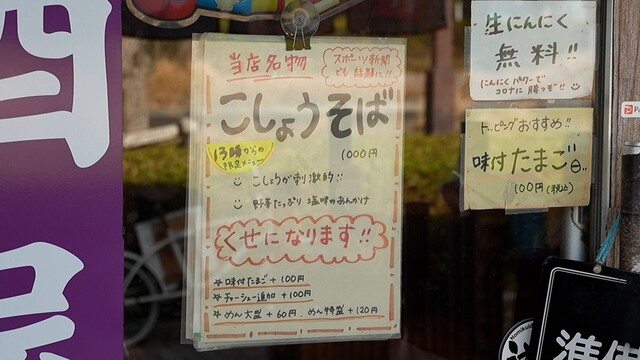 当店名物
スポーツ新聞
でも話題に!!
こしょうそば
13時からの
限定メニュー
1000円
こしょうが刺激的!!
野菜たっぷり 塩味のあんかけ
くせになります!!
☆味付たまご+100円
☆チャーシュー追加+100円
☆めん大盛+60円、めん特盛+120円
生にんにく
無料!!
にんにくパワーで
コロナに勝つぞ!!
トッピングおすすめ!!
味付たまご
100円(税込)
準備